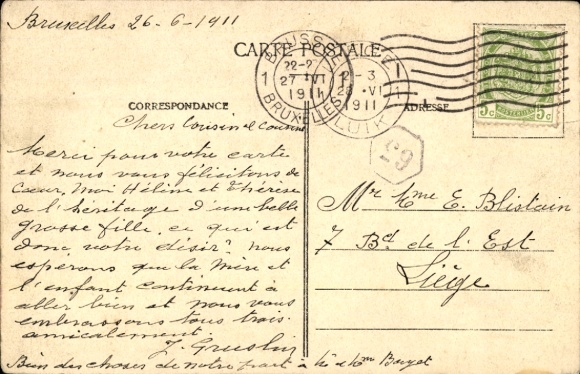 Bruxelles 26-6-1911
CARTE POSTALE
BRUSSEL
22-2
27 VI
1911
BRUXELLES
1
2-3
28 VI
1911
LUIK
1
CORRESPONDANCE
ADRESSE
5c 5c
69
Chers Cousin et Cousine
Merci pour votre carte
et nous vous félicitons de
Cœur, Moi Hélène et Thérèse
de l'héritage d'une belle
grosse fille, ce qui est
donc votre désir? nous
espérons que la Mère et
l'enfant continuent à
aller bien et nous vous
embrassons tous trois.
amicalement
J.
Bien des choses de notre part à Mr et Mme
Mr Mme E. Blistain
7 Bd de l'Est
Liège